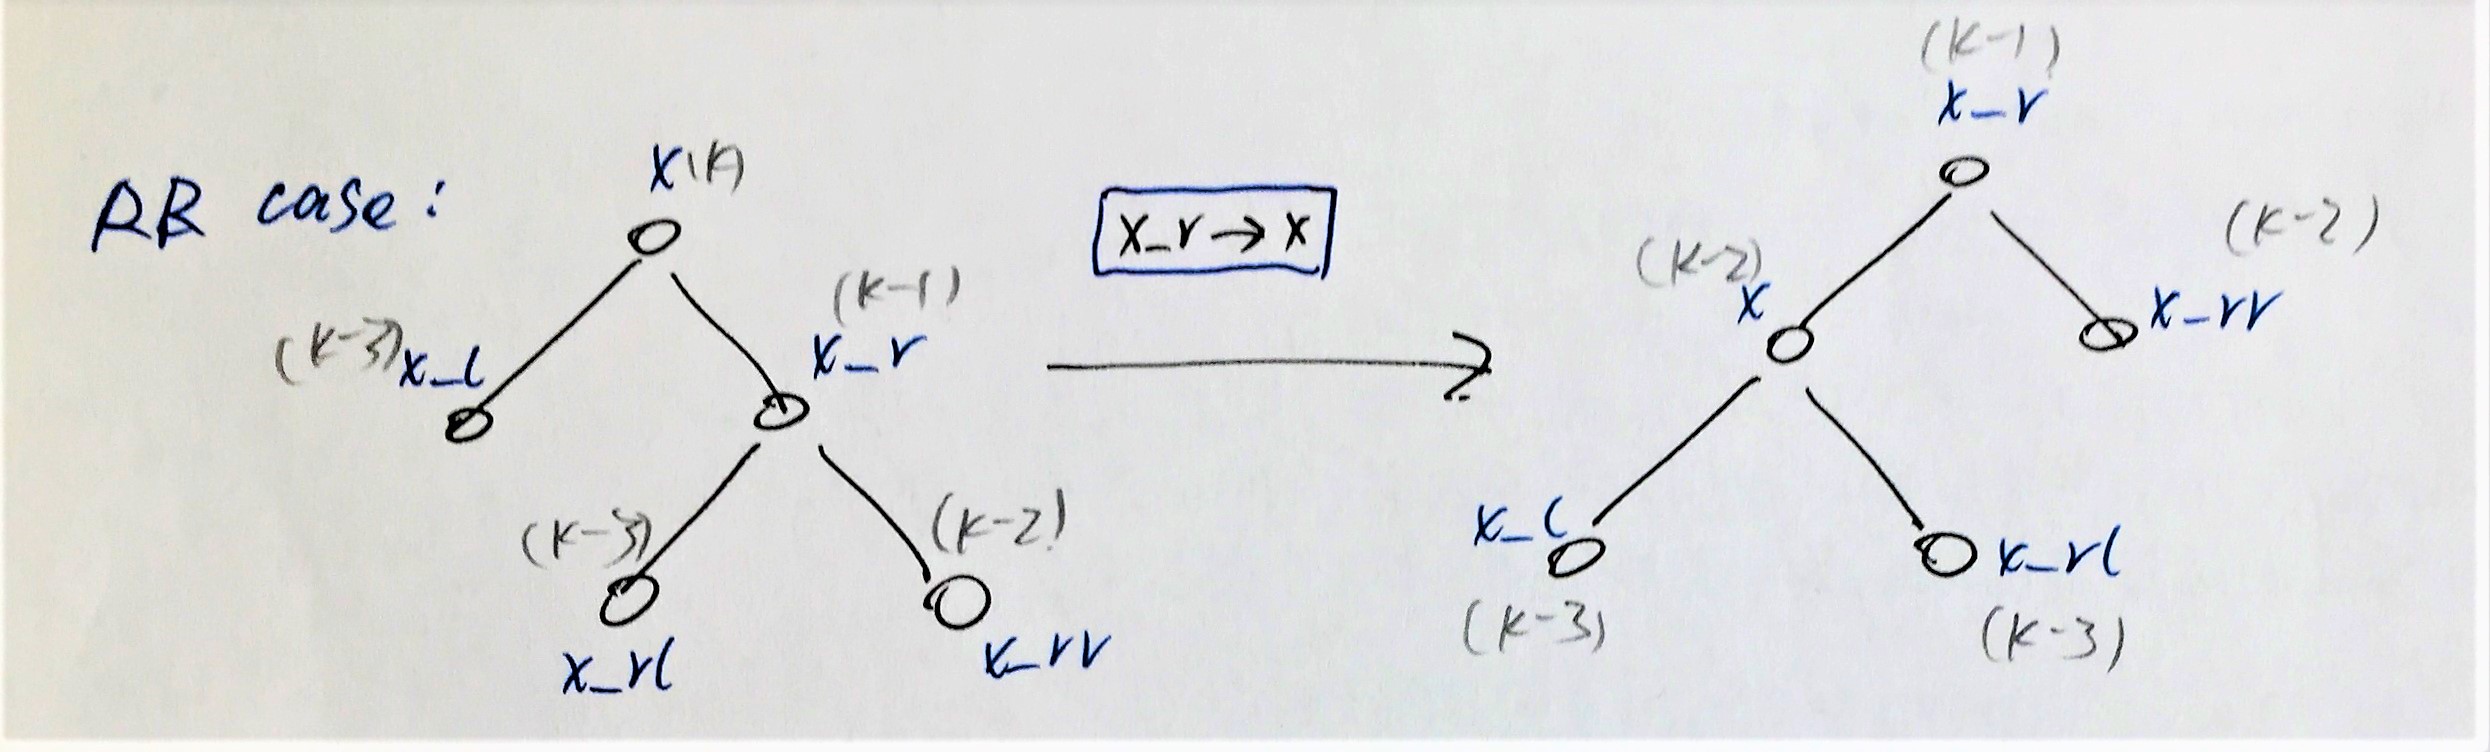 RB case:
x(k)
(k-3) x_l
(k-1)
x_r
(k-3)
x_rl
(k-2)
x_rr
x_r→x
(k-1)
x_r
(k-2)
x
(k-2)
x_rr
x_l
(k-3)
x_rl
(k-3)